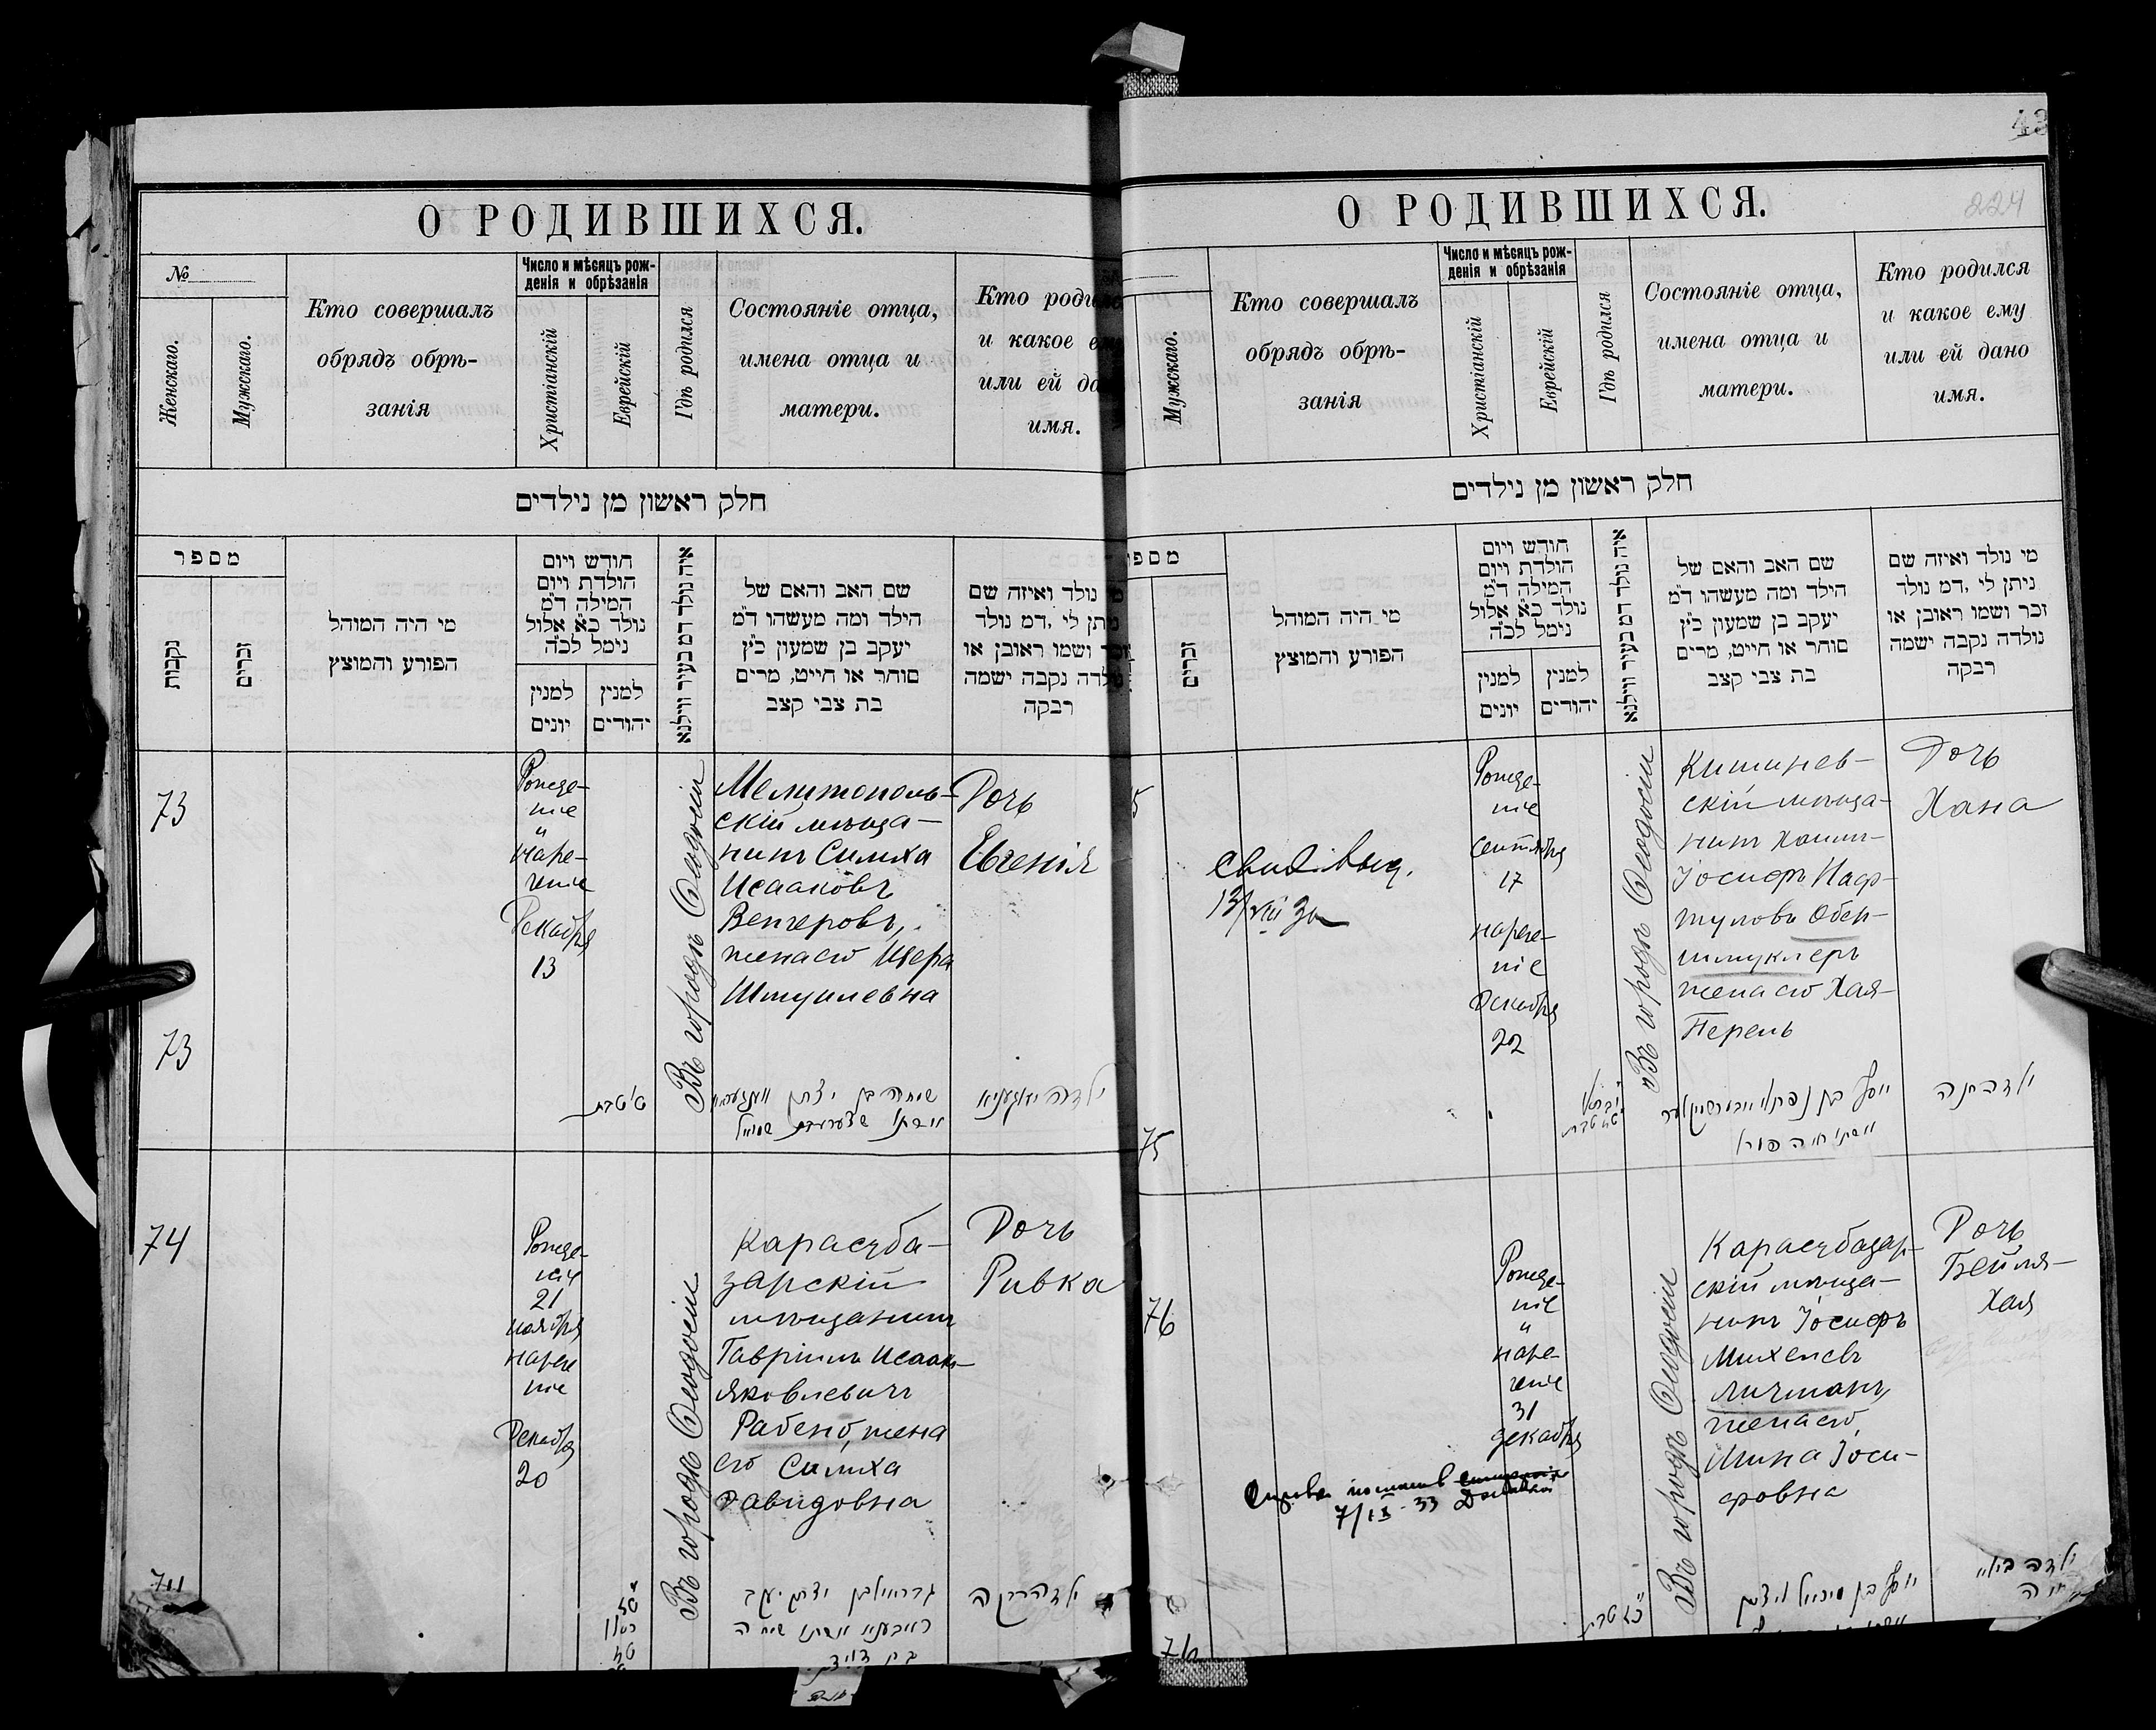 О РОДИВШИХСЯ.
№
Женскаго.
Мужскаго.
Кто совершалъ
обрядъ обрѣ-
занія
Число и мѣсяцъ рож-
денія и обрѣзанія
Христіанскій
Еврейскій
Гдѣ родился
Состояніе отца,
имена отца и
матери.
Кто роди
и какое е
или ей да
имя.
חלק ראשון מן נילדים
מספר
נקבות
זכרים
מי היה המוהל
הפורע והמוצץ
חודש ויום
הולדת ויום
המילה ד״מ
נולד כ״א אלול
נימל לכ״ה
למנין
יונים
למנין
יהודים
איה נולד דמ בעיר ווילנא
שם האב והאם של
הילד ומה מעשהו ד״מ
יעקב בן שמעון כ״ץ
סוחר או חייט, מרים
בת צבי קצב
מי נולד ואיזה שם
ניתן לי, דמ נולד
זכר ושמו ראובן או
נולדה נקבה ישמה
רבקה
73
Рожде-
ніе
и
наре-
ченіе
Декабря
13
Въ городѣ Ѳеодосіи
Мелитополь-
скій мѣща-
нинъ Симха
Исааковъ
Венгеровъ,
жена его
Шмуилевна
Дочь
Евгенія
73
ט׳ טבת
שמחה בן יצחק
ואשתו
שמואל
ילדה
74
Рожде-
ніе
21
ноября
нарече
ніе
Декабря
20
Въ городѣ Ѳеодосіи
Карасуба-
зарскій
мѣщанинъ
Гавріилъ Исаакъ-
Яковлевичъ
Рабено, жена
его Симха
Давидовна
Дочь
Ривка
74
יצחק יעקב
ואשתו שמחה
בת דוד
ילדה רבקה
43
224
О РОДИВШИХСЯ.
Мужскаго.
Кто совершалъ
обрядъ обрѣ-
занія
Число и мѣсяцъ рож-
денія и обрѣзанія
Христіанскій
Еврейскій
Гдѣ родился
Состояніе отца,
имена отца и
матери.
Кто родился
и какое ему
или ей дано
имя.
חלק ראשון מן נילדים
מספ
זכרים
מי היה המוהל
הפורע והמוצץ
חודש ויום
הולדת ויום
המילה ד״מ
נולד כ״א אלול
נימל לכ״ה
למנין
יונים
למנין
יהודים
איה נולד דמ בעיר ווילנא
שם האב והאם של
הילד ומה מעשהו ד״מ
יעקב בן שמעון כ״ץ
סוחר או חייט, מרים
בת צבי קצב
מי נולד ואיזה שם
ניתן לי, דמ נולד
זכר ושמו ראובן או
נולדה נקבה ישמה
רבקה
5
Свид. выд.
13/VIII
Рожде-
ніе
Сентября
17
нарече-
ніе
Декабря
22
Въ городѣ Ѳеодосіи
Кишинев-
скій мѣща-
нинъ Хаимъ-
Іосифъ Наф-
туловъ Обер-
шмуклеръ
жена его Хая-
Перель
Дочь
Хана
75
יוסף בן נפתלי
ואשתו חיה פערל
ילדה חנה
76
Рожде-
ніе
и
наре-
ченіе
31
декабря
7/IX-33
Въ городѣ Ѳеодосіи
Карасубазар-
скій мѣща-
нинъ Іосифъ
Михелевъ
жена его,
Мина Іоси-
фовна
Дочь
Бейля-
Хая
76
טבת
יוסף בן
ילדה ביילא
חיה